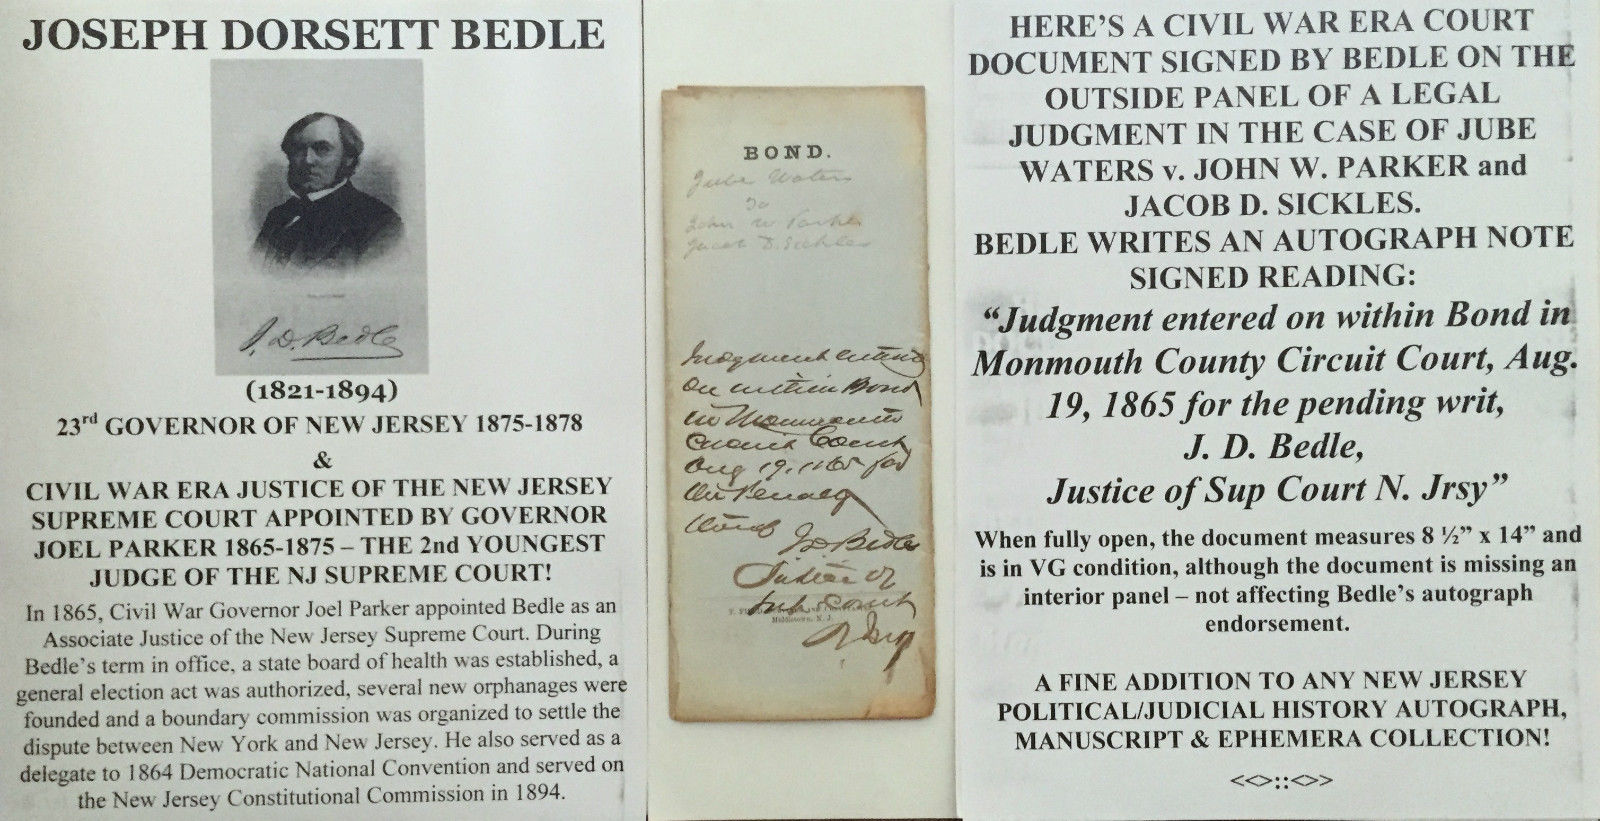 JOSEPH DORSETT BEDLE
J. D. Bedle
(1821-1894)
23rd GOVERNOR OF NEW JERSEY 1875-1878
&
CIVIL WAR ERA JUSTICE OF THE NEW JERSEY
SUPREME COURT APPOINTED BY GOVERNOR
JOEL PARKER 1865-1875 – THE 2nd YOUNGEST
JUDGE OF THE NJ SUPREME COURT!
In 1865, Civil War Governor Joel Parker appointed Bedle as an
Associate Justice of the New Jersey Supreme Court. During
Bedle's term in office, a state board of health was established, a
general election act was authorized, several new orphanages were
founded and a boundary commission was organized to settle the
dispute between New York and New Jersey. He also served as a
delegate to 1864 Democratic National Convention and served on
the New Jersey Constitutional Commission in 1894.
BOND.
Jube Waters
To
John W Parker
Jacob D. Sickles
Judgment entered
on within Bond
in Monmouth
Circuit Court
Aug 19, 1865 for
the Penalty
J D Bedle
Justice of
Sup Court
N Jrsy
Middletown, N. J.
HERE'S A CIVIL WAR ERA COURT
DOCUMENT SIGNED BY BEDLE ON THE
OUTSIDE PANEL OF A LEGAL
JUDGMENT IN THE CASE OF JUBE
WATERS v. JOHN W. PARKER and
JACOB D. SICKLES.
BEDLE WRITES AN AUTOGRAPH NOTE
SIGNED READING:
“Judgment entered on within Bond in
Monmouth County Circuit Court, Aug.
19, 1865 for the pending writ,
J. D. Bedle,
Justice of Sup Court N. Jrsy”
When fully open, the document measures 8 ½” x 14” and
is in VG condition, although the document is missing an
interior panel – not affecting Bedle's autograph
endorsement.
A FINE ADDITION TO ANY NEW JERSEY
POLITICAL/JUDICIAL HISTORY AUTOGRAPH,
MANUSCRIPT & EPHEMERA COLLECTION!
<<>::<>>